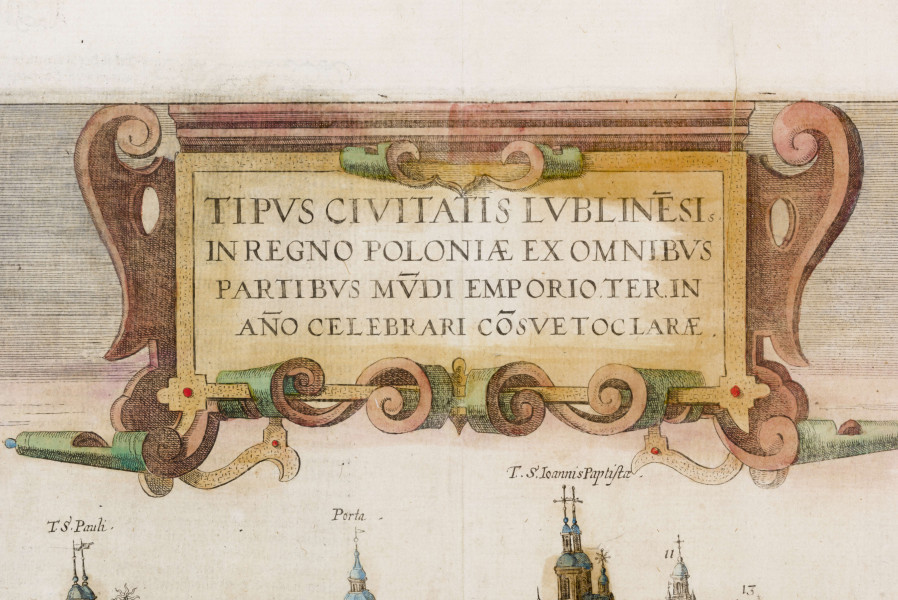 TIPVS CIVITATIS LVBLINĒSIs.
IN REGNO POLONIÆ EX OMNIBVS
PARTIBVS MV̄DI EMPORIO.TER.IN
AÑO CELEBRARI CŌSVETOCLARÆ.
T. S. Ioannis Paptistæ.
T S. Pauli.
Porta
11
13